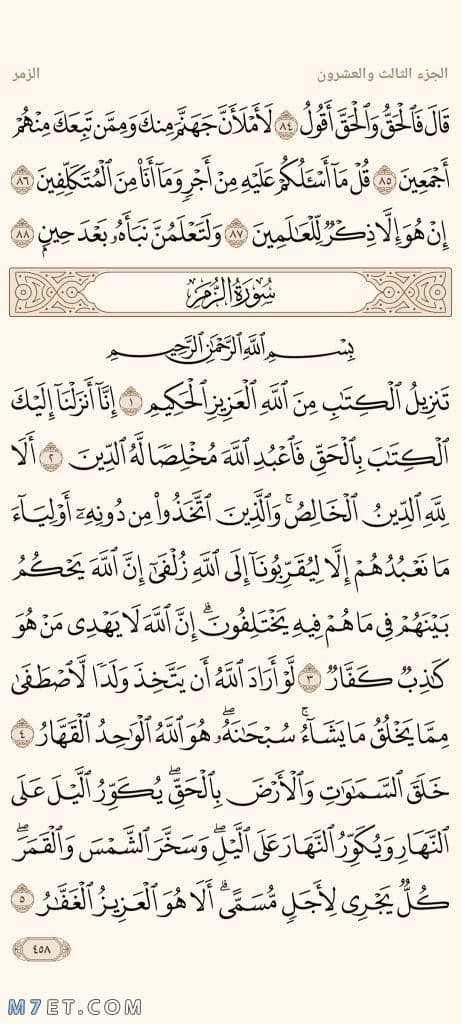 الجزء الثالث والعشرون
الزمر
قَالَ فَٱلْحَقُّ وَٱلْحَقَّ أَقُولُ ٨٤ لَأَمْلَأَنَّ جَهَنَّمَ مِنكَ وَمِمَّن تَبِعَكَ مِنْهُمْ
أَجْمَعِينَ ٨٥ قُلْ مَآ أَسْـَٔلُكُمْ عَلَيْهِ مِنْ أَجْرٍ وَمَآ أَنَا۠ مِنَ ٱلْمُتَكَلِّفِينَ ٨٦
إِنْ هُوَ إِلَّا ذِكْرٌ لِّلْعَـٰلَمِينَ ٨٧ وَلَتَعْلَمُنَّ نَبَأَهُۥ بَعْدَ حِينٍۭ ٨٨
سُورَةُ الزُّمَرِ
بِسْمِ ٱللَّهِ ٱلرَّحْمَـٰنِ ٱلرَّحِيمِ
تَنزِيلُ ٱلْكِتَـٰبِ مِنَ ٱللَّهِ ٱلْعَزِيزِ ٱلْحَكِيمِ ١ إِنَّآ أَنزَلْنَآ إِلَيْكَ
ٱلْكِتَـٰبَ بِٱلْحَقِّ فَٱعْبُدِ ٱللَّهَ مُخْلِصًا لَّهُ ٱلدِّينَ ٢ أَلَا
لِلَّهِ ٱلدِّينُ ٱلْخَالِصُ ۚ وَٱلَّذِينَ ٱتَّخَذُوا۟ مِن دُونِهِۦٓ أَوْلِيَآءَ
مَا نَعْبُدُهُمْ إِلَّا لِيُقَرِّبُونَآ إِلَى ٱللَّهِ زُلْفَىٰٓ إِنَّ ٱللَّهَ يَحْكُمُ
بَيْنَهُمْ فِى مَا هُمْ فِيهِ يَخْتَلِفُونَ ۗ إِنَّ ٱللَّهَ لَا يَهْدِى مَنْ هُوَ
كَـٰذِبٌ كَفَّارٌ ٣ لَّوْ أَرَادَ ٱللَّهُ أَن يَتَّخِذَ وَلَدًا لَّٱصْطَفَىٰ
مِمَّا يَخْلُقُ مَا يَشَآءُ ۚ سُبْحَـٰنَهُۥ ۖ هُوَ ٱللَّهُ ٱلْوَٰحِدُ ٱلْقَهَّارُ ٤
خَلَقَ ٱلسَّمَـٰوَٰتِ وَٱلْأَرْضَ بِٱلْحَقِّ ۖ يُكَوِّرُ ٱلَّيْلَ عَلَى
ٱلنَّهَارِ وَيُكَوِّرُ ٱلنَّهَارَ عَلَى ٱلَّيْلِ ۖ وَسَخَّرَ ٱلشَّمْسَ وَٱلْقَمَرَ ۖ
كُلٌّ يَجْرِى لِأَجَلٍ مُّسَمًّى ۗ أَلَا هُوَ ٱلْعَزِيزُ ٱلْغَفَّـٰرُ ٥
٤٥٨
M7ET.COM